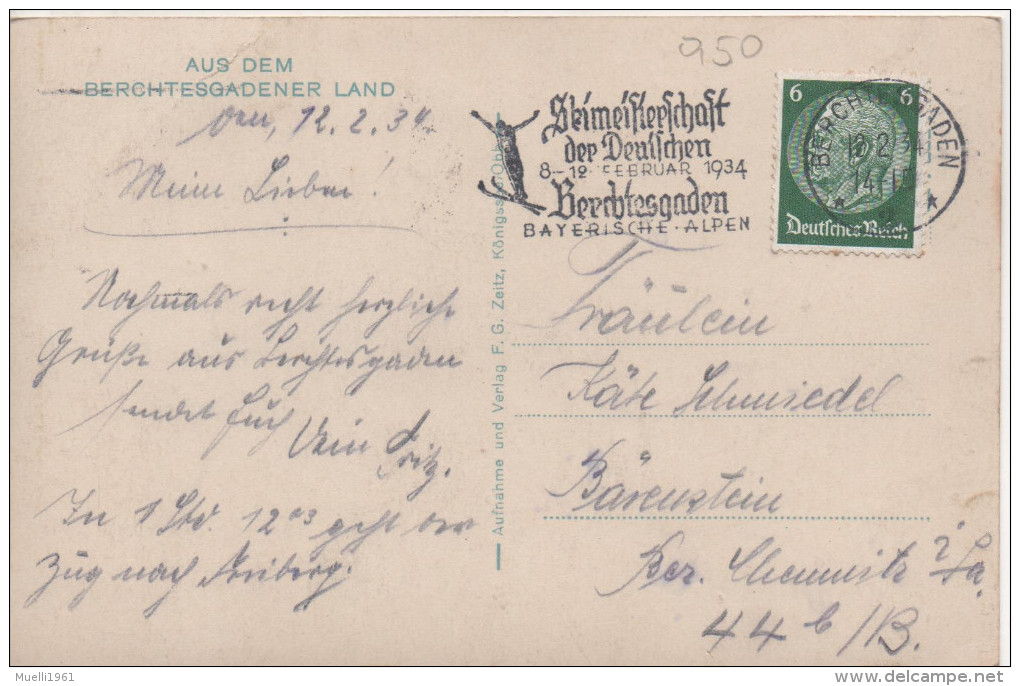 950
AUS DEM
BERCHTESGADENER LAND
den, 12.2.34
Meine Lieben!
Nochmals recht herzliche
Grüße aus Berchtesgaden
sendet Euch
Dein Fritz.
In 1 Std. 12⁰³ geht der
Zug nach Freiberg.
Aufnahme und Verlag F. G. Zeitz, Königssee Obb.
Skimeisterschaft
der Deutschen
8–12 FEBRUAR 1934
Berchtesgaden
BAYERISCHE ALPEN
6 6
Deutsches Reich
BERCHTESGADEN
12 2 34
14-15
Fräulein
Käte Schmiedel
Bärenstein
Bez. Chemnitz i/Sa.
44 b/B.
Muelli1961